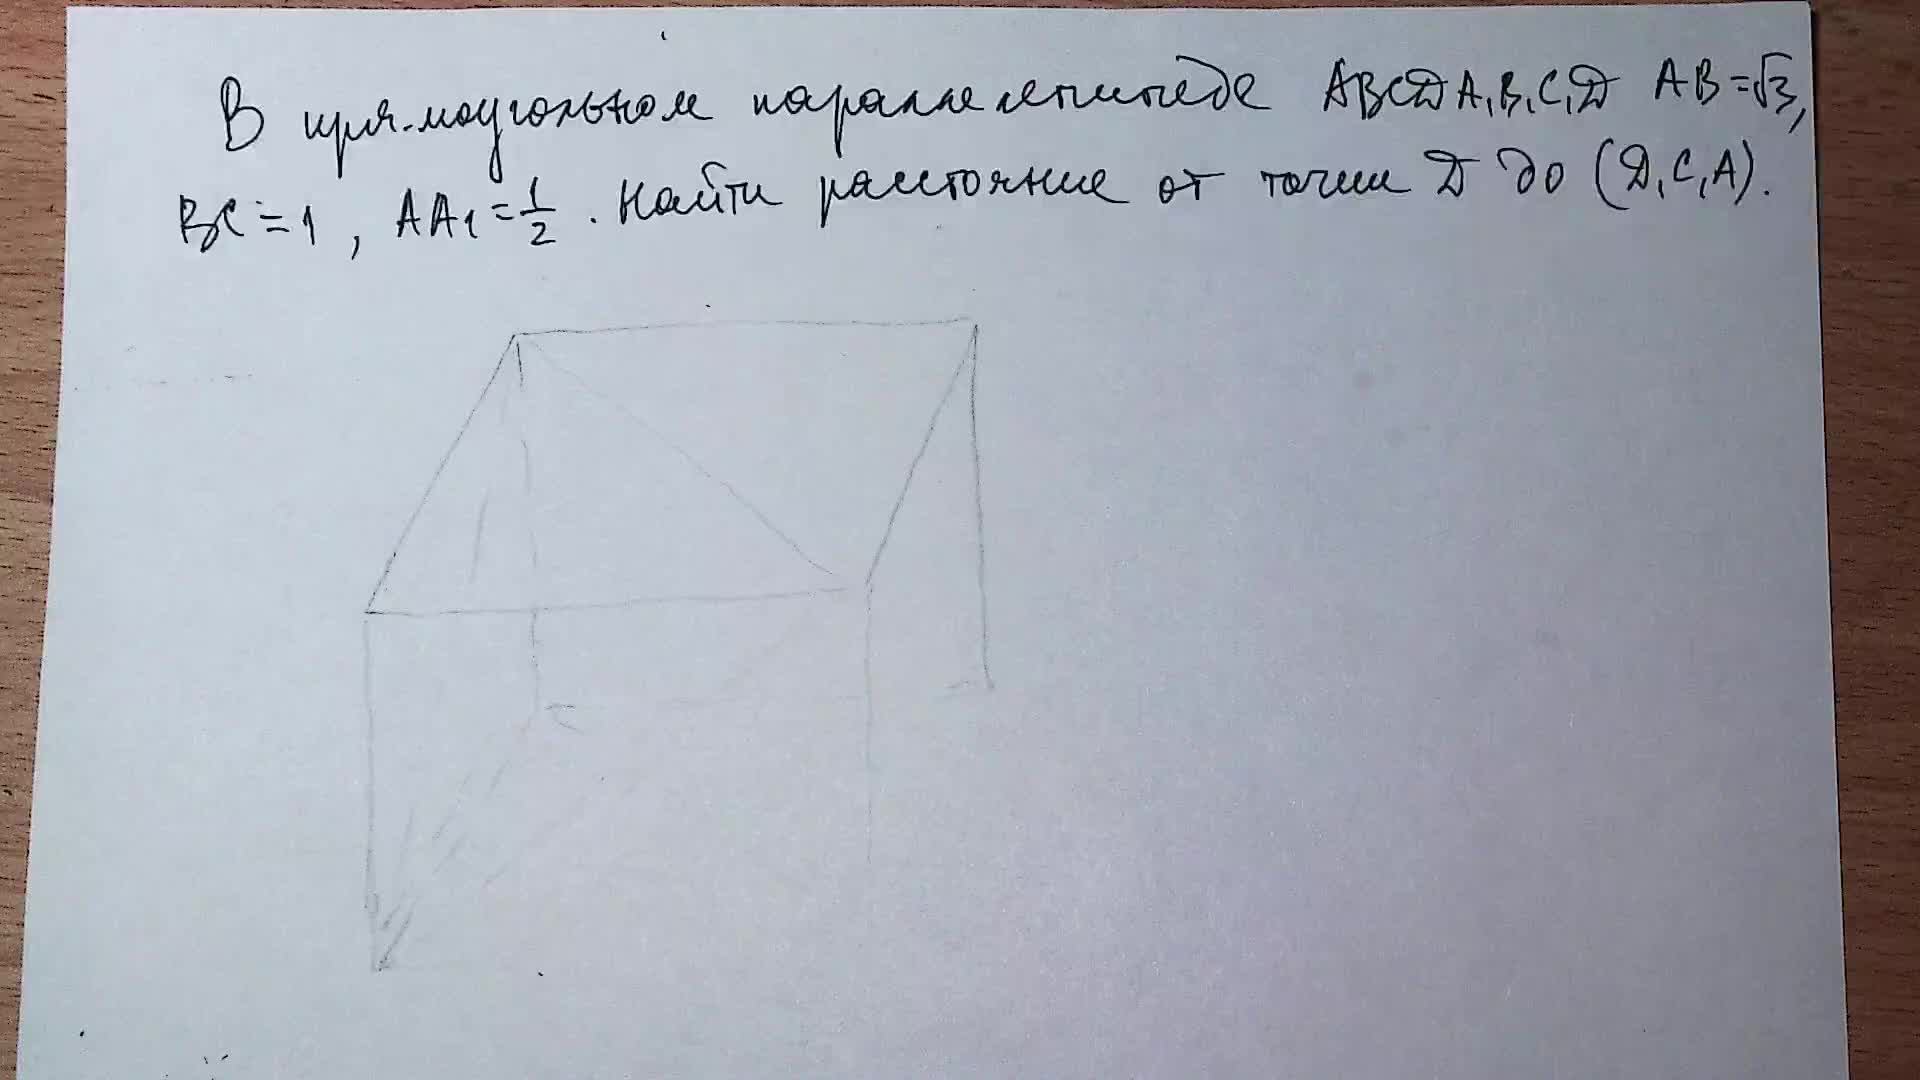 В прямоугольном параллелепипеде ABCDA₁B₁C₁D AB=√3,
BC=1, AA₁=1/2. Найти расстояние от точки D до (D₁C₁A).